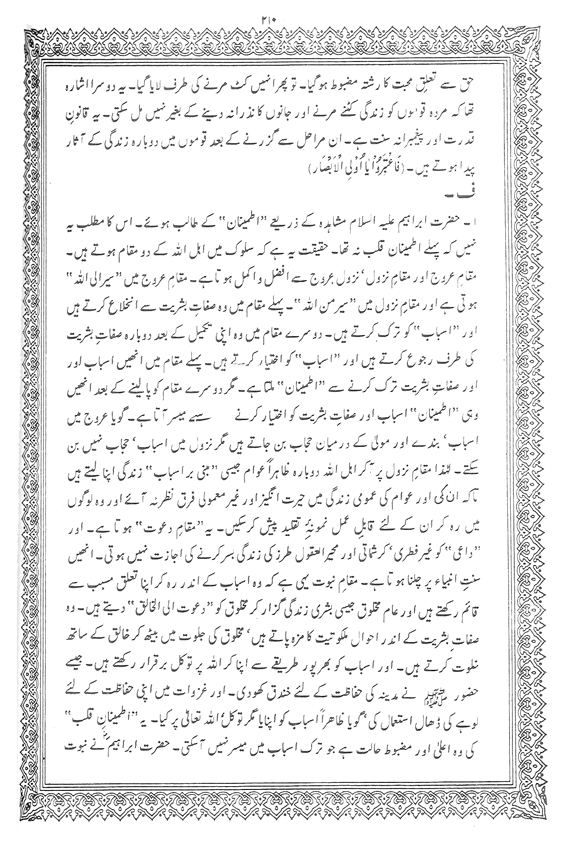 ۲۱۰
حق سے تعلق محبت کا رشتہ مضبوط ہوگیا۔ تو پھر انہیں کٹ مرنے کی طرف لایا گیا۔ یہ دوسرا اشارہ
تھا کہ مردہ قوموں کو زندگی کٹنے مرنے اور جانوں کا نذرانہ دینے کے بغیر نہیں مل سکتی۔ یہ قانونِ
قدرت اور پیغمبرانہ سنت ہے۔ ان مراحل سے گزرنے کے بعد قوموں میں دوبارہ زندگی کے آثار
پیدا ہوتے ہیں۔ (فَاعْتَبِرُوْا يٰا اُولِی الْاَبْصَار)
ف ۔
۱۔ حضرت ابراہیم علیہ السلام مشاہدہ کے ذریعے "اطمینان" کے طالب ہوئے۔ اس کا مطلب یہ
نہیں کہ پہلے اطمینان قلب نہ تھا۔ حقیقت یہ ہے کہ سلوک میں اہل اللہ کے دو مقام ہوتے ہیں۔
مقامِ عروج اور مقامِ نزول، نزول عروج سے افضل و اکمل ہوتا ہے۔ مقامِ عروج میں "سیر الی اللہ"
ہوتی ہے اور مقامِ نزول میں "سیر من اللہ"۔ پہلے مقام میں وہ صفاتِ بشریت سے انخلاع کرتے ہیں
اور "اسباب" کو ترک کرتے ہیں۔ دوسرے مقام میں وہ اپنی تکمیل کے بعد دوبارہ صفاتِ بشریت
کی طرف رجوع کرتے ہیں اور "اسباب" کو اختیار کرتے ہیں۔ پہلے مقام میں انھیں اسباب اور
اور صفاتِ بشریت ترک کرنے سے "اطمینان" ملتا ہے۔ مگر دوسرے مقام کو پالینے کے بعد انھیں
وہی "اطمینان" اسباب اور صفاتِ بشریت کو اختیار کرنے سے میسر آتا ہے۔ گویا عروج میں
اسباب، بندے اور مولیٰ کے درمیان حجاب بن جاتے ہیں مگر نزول میں اسباب، حجاب نہیں بن
سکتے۔ لہٰذا مقامِ نزول پر آکر اہل اللہ دوبارہ ظاہراً عوام جیسی "مبنی بر اسباب" زندگی اپنا لیتے ہیں
تاکہ ان کی اور عوام کی عمومی زندگی میں حیرت انگیز اور غیر معمولی فرق نظر نہ آئے اور وہ لوگوں
میں رہ کر ان کے لئے قابلِ عمل نمونۂ تقلید پیش کرسکیں۔ یہ "مقامِ دعوت" ہوتا ہے۔ اور
"داعی" کو غیر فطری، کرشماتی اور محیرالعقول طرز کی زندگی بسر کرنے کی اجازت نہیں ہوتی۔ انھیں
سنتِ انبیاء پر چلنا ہوتا ہے۔ مقامِ نبوت یہی ہے کہ وہ اسباب کے اندر رہ کر اپنا تعلق مسبب سے
قائم رکھتے ہیں اور عام مخلوق جیسی بشری زندگی گزار کر مخلوق کو "دعوت الی الخالق" دیتے ہیں۔ وہ
صفاتِ بشریت کے اندر احوالِ ملکوتیت کا مزہ پاتے ہیں، مخلوق کی جلوت میں بیٹھ کر خالق کے ساتھ
خلوت کرتے ہیں۔ اور اسباب کو بھرپور طریقے سے اپنا کر اللہ پر توکل برقرار رکھتے ہیں۔ جیسے
حضور ﷺ نے مدینہ کی حفاظت کے لئے خندق کھودی۔ اور غزوات میں اپنی حفاظت کے لئے
لوہے کی ڈھال استعمال کی، گویا ظاہراً اسباب کو اپنایا مگر توکل، اللہ تعالیٰ پر کیا۔ یہ "اطمینانِ قلب"
کی وہ اعلیٰ اور مضبوط حالت ہے جو ترک اسباب میں میسر نہیں آسکتی۔ حضرت ابراہیمؑ نے نبوت